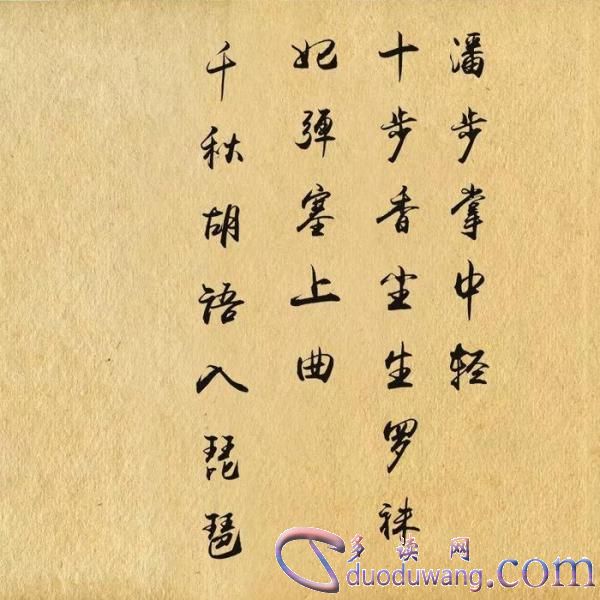 潘步掌中轻
十步香尘生罗袜
妃弹塞上曲
千秋胡语入琵琶
多读网
duoduwang.com